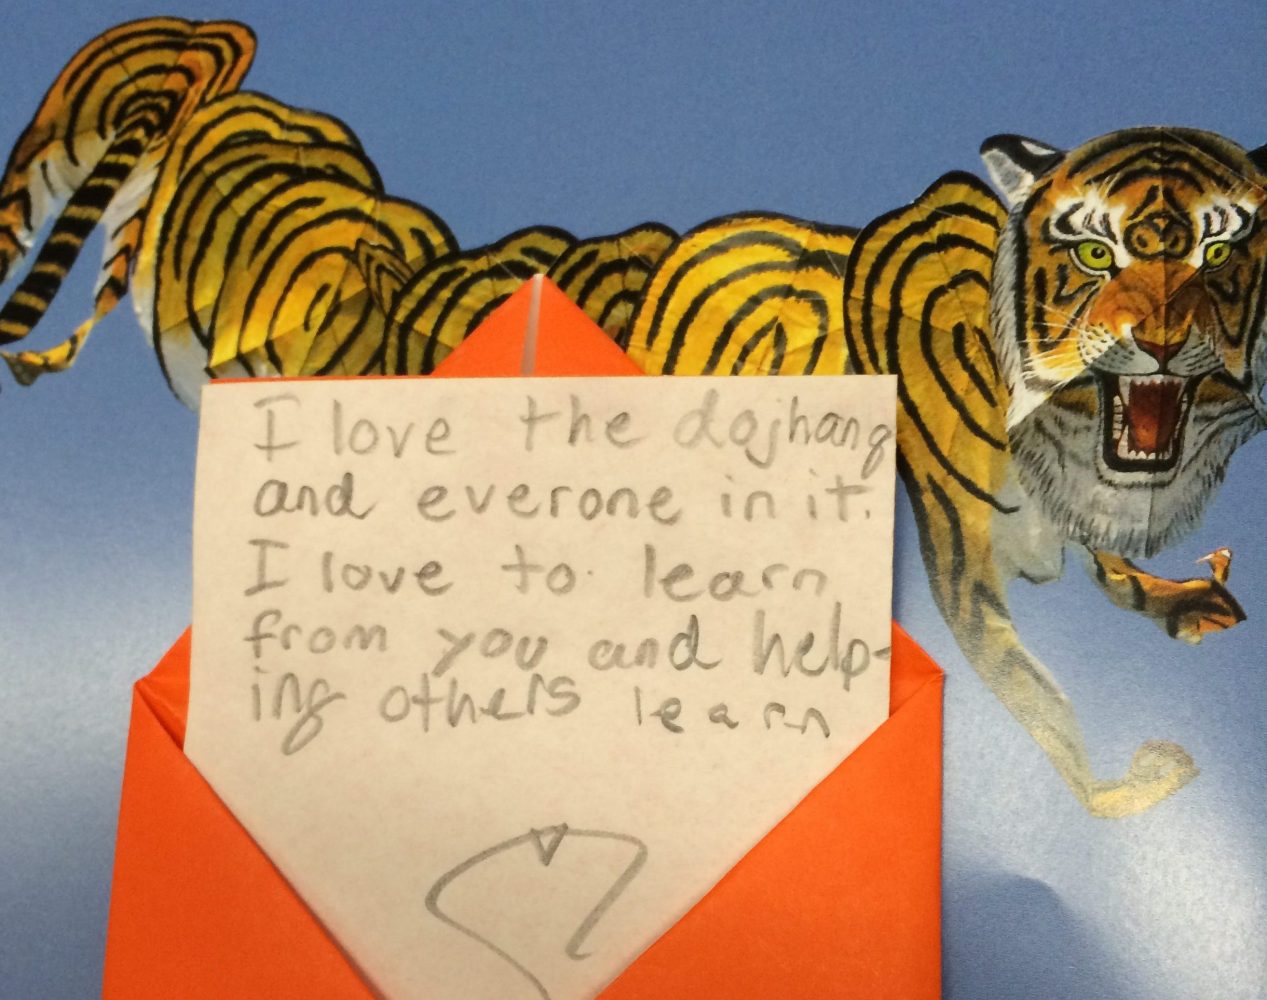 I love the dojhang
and everone in it.
I love to learn
from you and help-
ing others learn